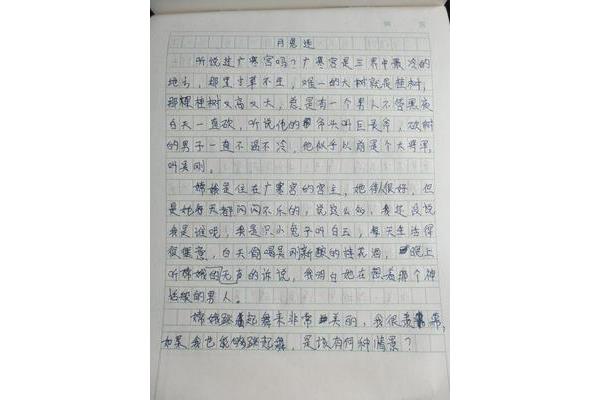 月兔遥
听说过广寒宫吗？广寒宫是三界中最冷的
地方，那里寸草不生，唯一的大树就是桂树，
那棵桂树又高又大，总是有一个男人不管黑夜
白天一直砍，听说他的斧头叫巨灵斧，砍树
的男子一直不温不冷，他似乎以前是个大将军，
叫吴刚。
嫦娥是住在广寒宫的宫主，她很好，但
是她每天都闷闷不乐的，说这么多，我还没说
我是谁呢，我是只小兔子叫白云，每天生活得
很惬意，白天偷喝吴刚新酿的桂花酒，晚上
听嫦娥的无声的诉说，我明白她在想着那个神
的男人。
嫦娥跳起舞来非常美丽，我很羡慕，
如果我也能够跳起舞，是该有何种情景？